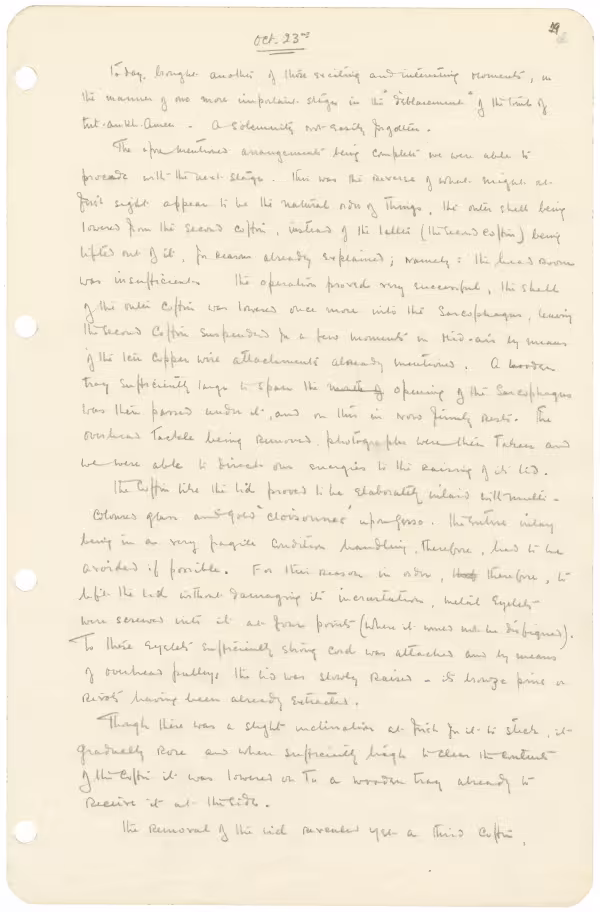 Oct. 23rd
29
Today brought another of those exciting and interesting moments, in
the manner of one more important stage in the "disblacement" of the tomb of
Tut.ankh.Amen. A solemnity not easily forgotten.
The afore mentioned arrangements being complete we were able to
procede with the next stage. This was the reverse of what might at
first sight appear to be the natural order of things, the outer shell being
lowered from the second coffin, instead of the latter (the second coffin) being
lifted out of it, for reasons already explained; namely: the head room
was insufficient. The operation proved very successful, the shell
of the outer coffin was lowered once more into the Sarcophagus, leaving
the second coffin suspended for a few moments in mid-air by means
of the ten copper wire attachments already mentioned. A wooden
tray sufficiently large to span the mouth of opening of the Sarcophagus
was then passed under it, and on this it now firmly rests. The
overhead tackle being removed, photographs were then taken and
we were able to direct our energies to the raising of its lid.
The Coffin like the lid proved to be elaborately inlaid with multi-
coloured glass and gold "cloisonnes" upon gesso. The entire inlay
being in a very fragile condition handling, therefore, had to be
avoided if possible. For this reason in order, therefore, to
lift the lid without damaging its incrustation, metal eyelets
were screwed into it at four points (where it would not be disfigured).
To these eyelets sufficiently strong cord was attached and by means
of overhead pulleys the lid was slowly raised - its bronze pins or
rivets having been already extracted.
Though there was a slight inclination at first for it to stick, it
gradually rose and when sufficiently high to clear the contents
of the coffin it was lowered on to a wooden tray already to
receive it at the side.
The removal of the lid revealed yet a third coffin,